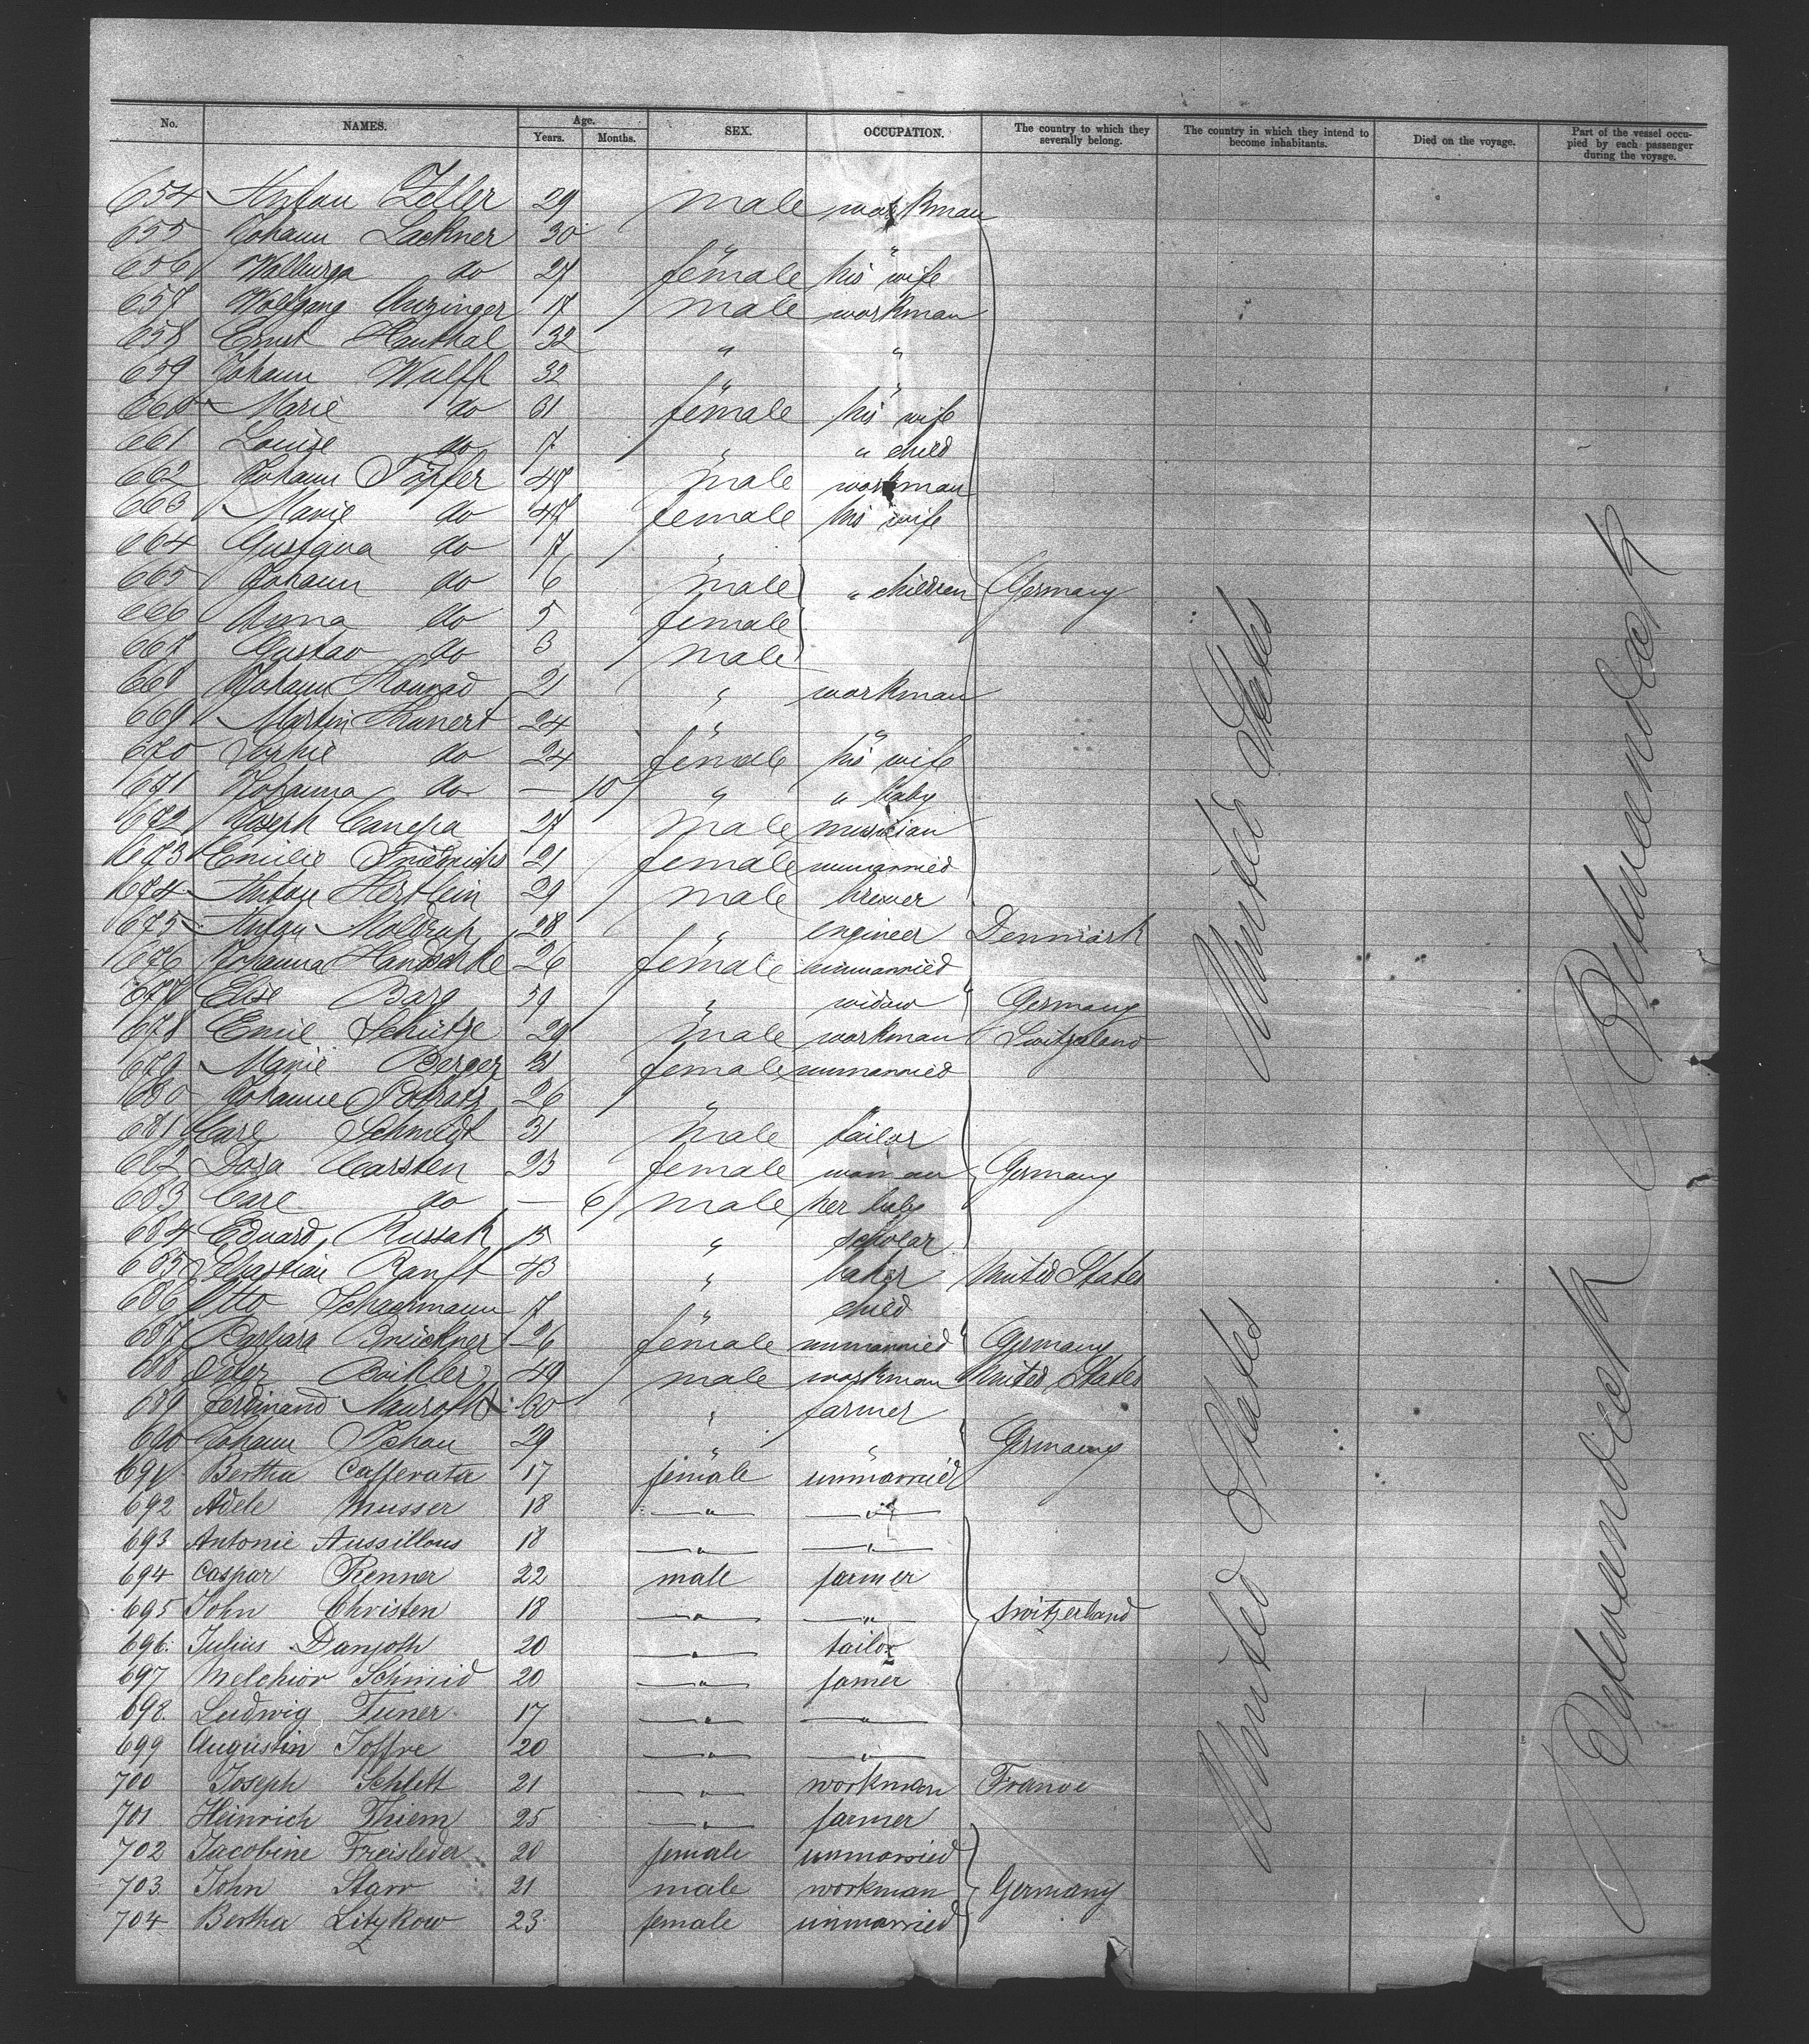 No. NAMES. Age. Years. Months. SEX. OCCUPATION. The country to which they severally belong. The country in which they intend to become inhabitants. Died on the voyage. Part of the vessel occupied by each passenger during the voyage.
654 Anton Zeller 29 male workman
655 Johann Lackner 30 " "
656 Walburga do 27 female his wife
657 Wolfgang 17 male workman
658 Ernst Hanthal 32 " "
659 Johann Wulff 32 " "
660 Marie do 31 female his wife
661 Louise do 7 " " child
662 Johann Töpfer 47 male workman
663 Marie do 47 female his wife
664 do 7 "
665 Johann do 6 male " children Germany
666 Anna do 5 female
667 Gustav do 3 male
668 Johann Konrad 21 " workman
669 Martin Kunert 24 " "
670 Sophie do 24 female his wife
671 Johanna do — 10 " " baby
672 Joseph Canepa 27 male musician
673 Emilie Friedrichs 21 female unmarried
674 Anton Hertlein 29 male brewer
675 Anton Moldrup 28 " engineer Denmark
676 Johanna 26 female unmarried
677 Elise Barg 59 " widow " Germany
678 Emil Schütze 29 male workman Switzerland
679 Marie Berger 31 female unmarried
680 Johanne 26 " "
681 Carl Schmidt 31 male tailor
682 Dora Carsten 23 female woman Germany
683 Carl do — 6 male her baby
684 Eduard Russak 15 " scholar
685 Sebastian Ranft 43 " baker United States
686 Otto Schaermann 7 " child
687 Barbara Brückner 26 female unmarried " Germany
688 49 male workman United States
689 Ferdinand 60 " farmer
690 Johann Schau 29 " " Germany
691 Bertha Cafferata 17 female unmarried
692 Adele Musser 18 — " — — " —
693 Antonie Aussillous 18 — " — — " —
694 Caspar Renner 22 male farmer
695 John Christen 18 — " — — " — Switzerland
696 Julius Danjoth 20 — " — tailor
697 Melchior Schmid 20 — " — famer
698 Ludwig Tuner 17 — " — — " —
699 Augustin Joffre 20 — " — — " —
700 Joseph Schlett 21 — " — workman France
701 Heinrich Thiem 25 — " — farmer
702 Jacobine Freisleder 20 female unmarried
703 John Starr 21 male workman Germany
704 Bertha Litzkow 23 female unmarried
United States
United States
Betweendeck
Betweendeck